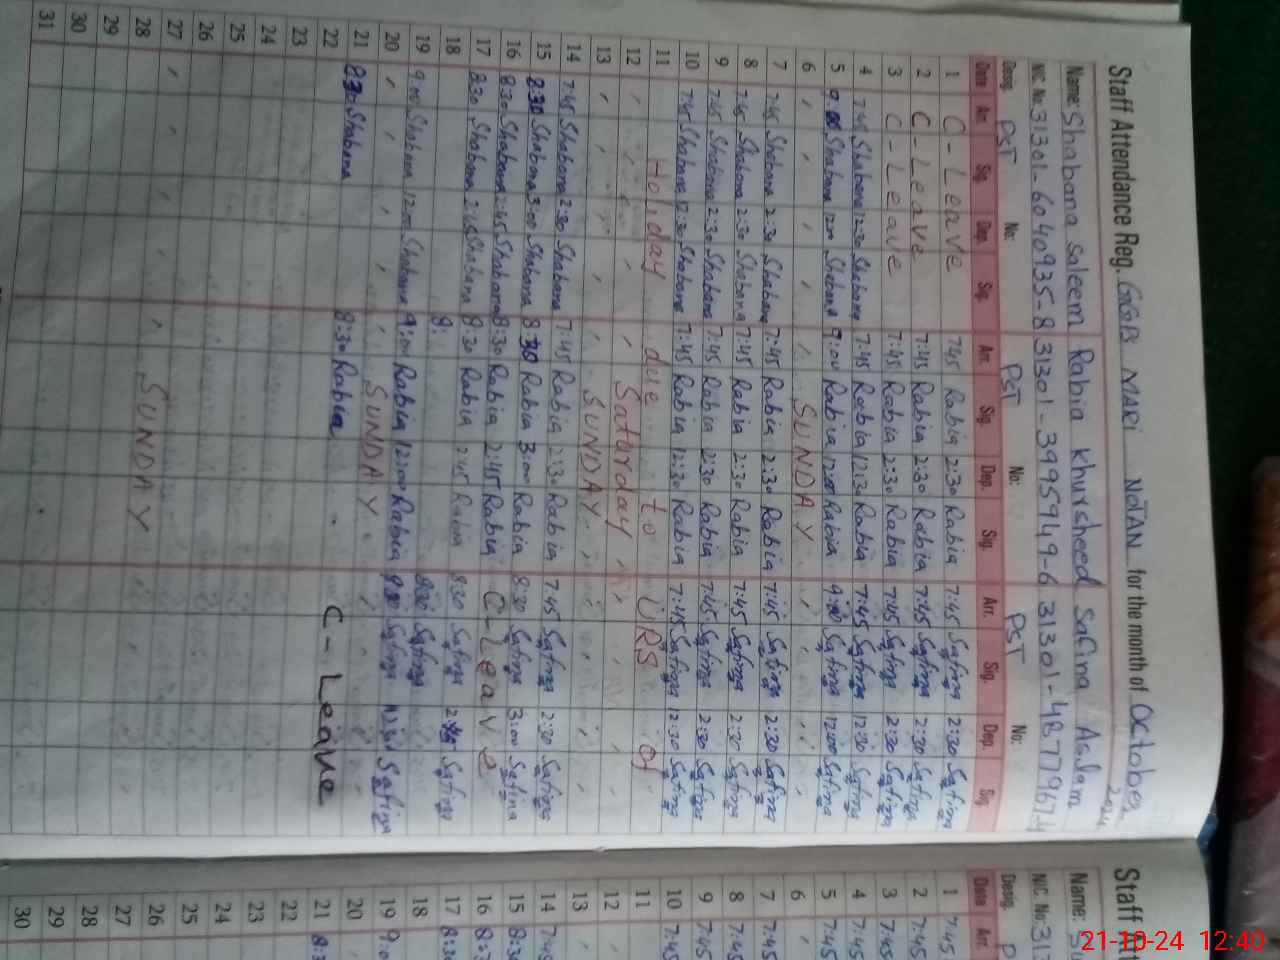 Staff Attendance Reg. GGPS MARI NOTAN for the month of October 2024
Name: Shabana Saleem Rabia Khursheed Safina Aslam
NIC. No: 31301-6040935-8 31301-3995949-6 31301-4877967-4
Desig. PST No: PST No: PST No:
Date Arr. Sig. Dep. Sig. Arr. Sig. Dep. Sig. Arr. Sig. Dep. Sig.
1 C-Leave 7:45 Rabia 2:30 Rabia 7:45 Safina 2:30 Safina
2 C-Leave 7:45 Rabia 2:30 Rabia 7:45 Safina 2:30 Safina
3 C-Leave 7:45 Rabia 2:30 Rabia 7:45 Safina 2:30 Safina
4 7:45 Shabana 12:30 Shabana 7:45 Rabia 12:30 Rabia 7:45 Safina 12:30 Safina
5 9:00 Shabana 12:00 Shabana 9:00 Rabia 12:00 Rabia 9:00 Safina 12:00 Safina
6 SUNDAY
7 7:45 Shabana 2:30 Shabana 7:45 Rabia 2:30 Rabia 7:45 Safina 2:30 Safina
8 7:45 Shabana 2:30 Shabana 7:45 Rabia 2:30 Rabia 7:45 Safina 2:30 Safina
9 7:45 Shabana 2:30 Shabana 7:45 Rabia 2:30 Rabia 7:45 Safina 2:30 Safina
10 7:45 Shabana 12:30 Shabana 7:45 Rabia 12:30 Rabia 7:45 Safina 12:30 Safina
11 Holiday due to URS of
12 Saturday
13 SUNDAY
14 7:45 Shabana 2:30 Shabana 7:45 Rabia 2:30 Rabia 7:45 Safina 2:30 Safina
15 8:30 Shabana 3:00 Shabana 8:30 Rabia 3:00 Rabia 8:30 Safina 3:00 Safina
16 8:30 Shabana 2:45 Shabana 8:30 Rabia 2:45 Rabia C-Leave
17 8:30 Shabana 2:45 Shabana 8:30 Rabia 2:45 Rabia 8:30 Safina 2:45 Safina
18 8: 8:30 Safina
19 9:00 Shabana 12:00 Shabana 9:00 Rabia 12:00 Rabia Safina Safina
20 SUNDAY
21 8:30 Shabana 8:30 Rabia C-Leave
22
23
24
25
26
27 SUNDAY
28
29
30
31
Staff At
Name:
NIC. No: 313
Desig. P
Date Arr.
1 7:45
2 7:45
3 7:45
4 7:45
5 7:45
6
7 7:45
8 7:45
9 7:45
10 7:45
11
12
13
14 7:45
15 8:30
16
17 8:3
18
19 9:0
20
21 8:3
22
23
24
25
26
27
28
29
30
21-10-24 12:40